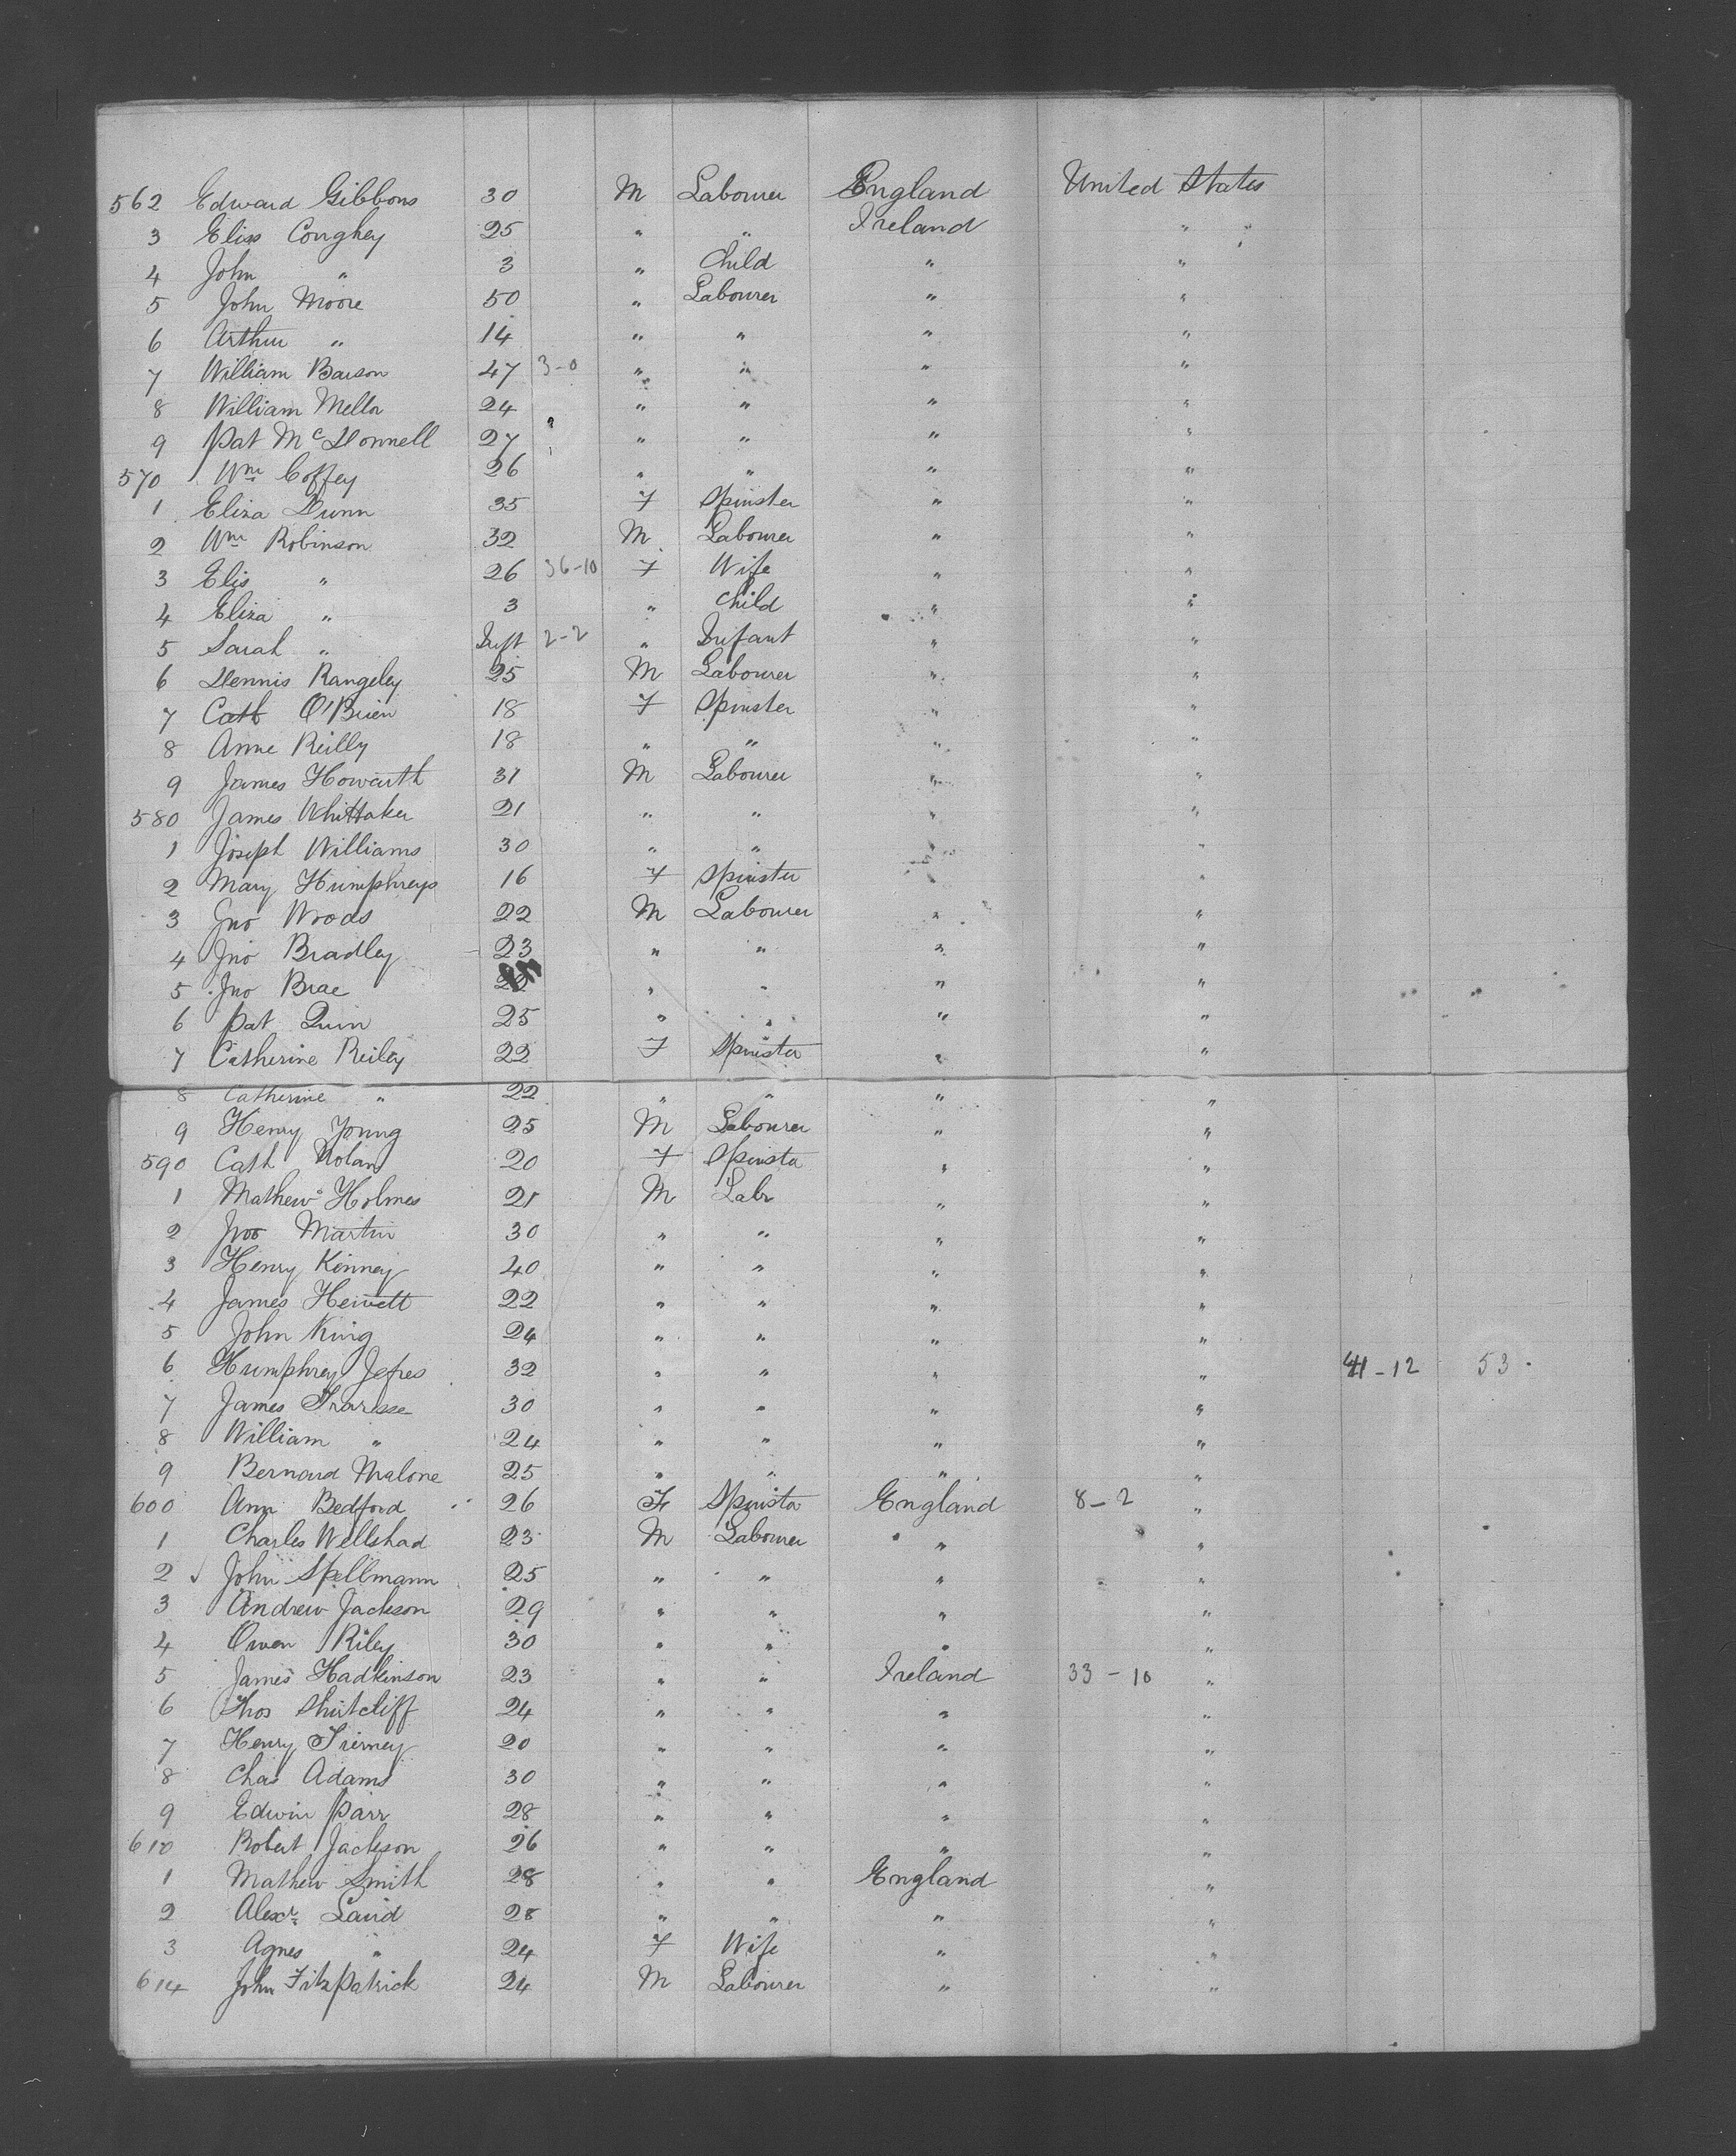 562 Edward Gibbons 30 M Labourer England United States
3 Eliss Coughey 25 " " Ireland "
4 John " 3 " Child " "
5 John Moore 50 " Labourer " "
6 Arthur " 14 " " " "
7 William Barson 47 3-0 " " " "
8 William Mellor 24 " " " "
9 Pat McDonnell 27 " " " "
570 Wm Coffey 26 " " " "
1 Eliza Dunn 35 F Spinster " "
2 Wm Robinson 32 M Labourer " "
3 Elis " 26 36-10 F Wife " "
4 Eliza " 3 " Child " "
5 Sarah " Inft 2-2 " Infant " "
6 Dennis Rangeley 25 M Labourer " "
7 Cath O'Brien 18 F Spinster " "
8 Anne Reilly 18 " " " "
9 James Howarth 31 M Labourer " "
580 James Whittaker 21 " " " "
1 Joseph Williams 30 " " " "
2 Mary Humphreys 16 F Spinster " "
3 Jno Woods 22 M Labourer " "
4 Jno Bradley 23 " " " "
5 Jno Brae " " " "
6 Pat Quin 25 " " " "
7 Catherine Reiley 22 F Spinster " "
8 Catherine " 22 " " " "
9 Henry Young 25 M Labourer " "
590 Cath Nolan 20 F Spinster " "
1 Mathew Holmes 21 M Labr " "
2 Jno Martin 30 " " " "
3 Henry Kinney 40 " " " "
4 James Hewett 22 " " " "
5 John King 24 " " " "
6 Humphrey Jefres 32 " " " " 41-12 53
7 James 30 " " " "
8 William " 24 " " " "
9 Bernard Malone 25 " " " "
600 Ann Bedford 26 F Spinster England 8-2 "
1 Charles Wellshad 23 M Labourer " "
2 John Spellmann 25 " " " "
3 Andrew Jackson 29 " " " "
4 Owen Riley 30 " " " "
5 James Hadkinson 23 " " Ireland 33-10 "
6 Thos Shutcliff 24 " " " "
7 Henry Tierney 20 " " " "
8 Chas Adams 30 " " " "
9 Edwin Parr 28 " " " "
610 Robert Jackson 26 " " " "
1 Mathew Smith 28 " " England "
2 Alexr Laird 28 " " " "
3 Agnes " 24 F Wife " "
614 John Fitzpatrick 24 M Labourer " "